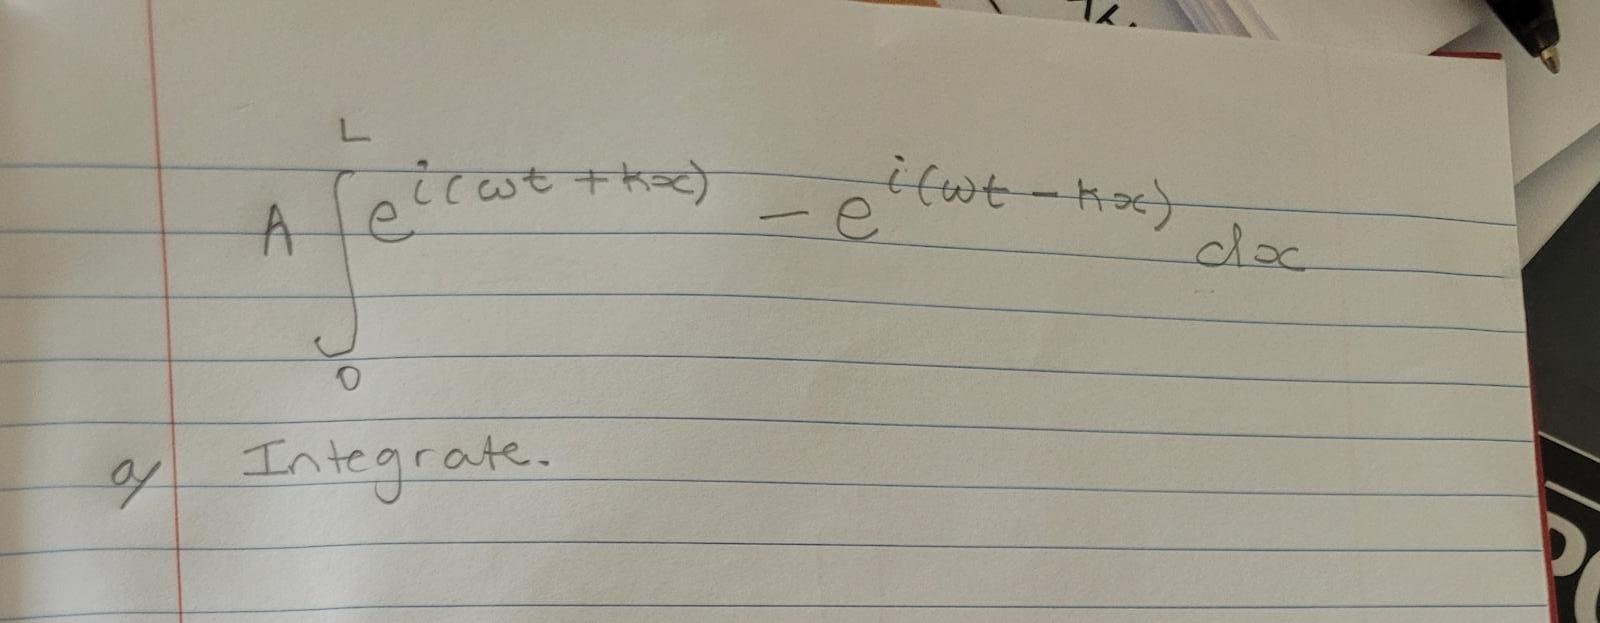 A ∫₀ᴸ e^{i(ωt + kx)} - e^{i(ωt - kx)} dx
a) Integrate.